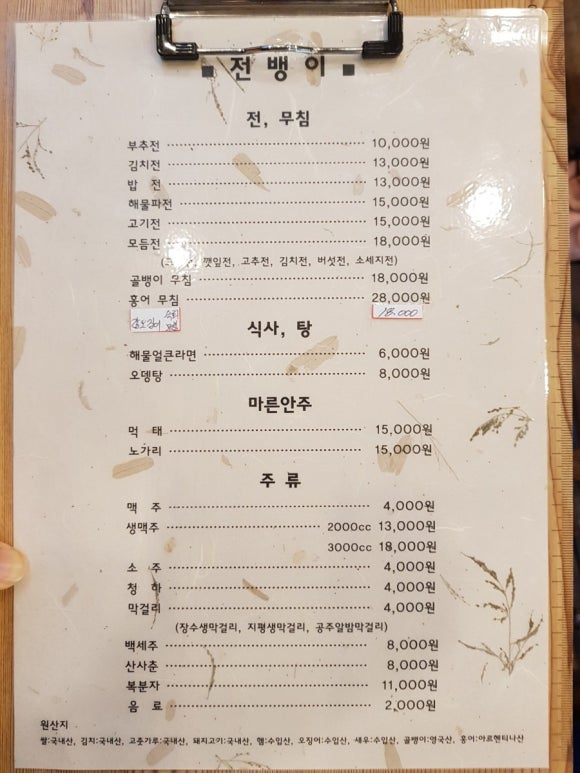 ■ 전뱅이 ■
전, 무침
부추전 10,000원
김치전 13,000원
밥 전 13,000원
해물파전 15,000원
고기전 15,000원
모듬전 18,000원
깻잎전, 고추전, 김치전, 버섯전, 소세지전)
골뱅이 무침 18,000원
홍어 무침 28,000원
갑오징어 18.000
식사, 탕
해물얼큰라면 6,000원
오뎅탕 8,000원
마른안주
먹 태 15,000원
노가리 15,000원
주 류
맥 주 4,000원
생맥주 2000cc 13,000원
3000cc 18,000원
소 주 4,000원
청 하 4,000원
막걸리 4,000원
(장수생막걸리, 지평생막걸리, 공주알밤막걸리)
백세주 8,000원
산사춘 8,000원
복분자 11,000원
음 료 2,000원
원산지
쌀:국내산, 김치:국내산, 고춧가루:국내산, 돼지고기:국내산, 햄:수입산, 오징어:수입산, 새우:수입산, 골뱅이:영국산, 홍어:아르헨티나산